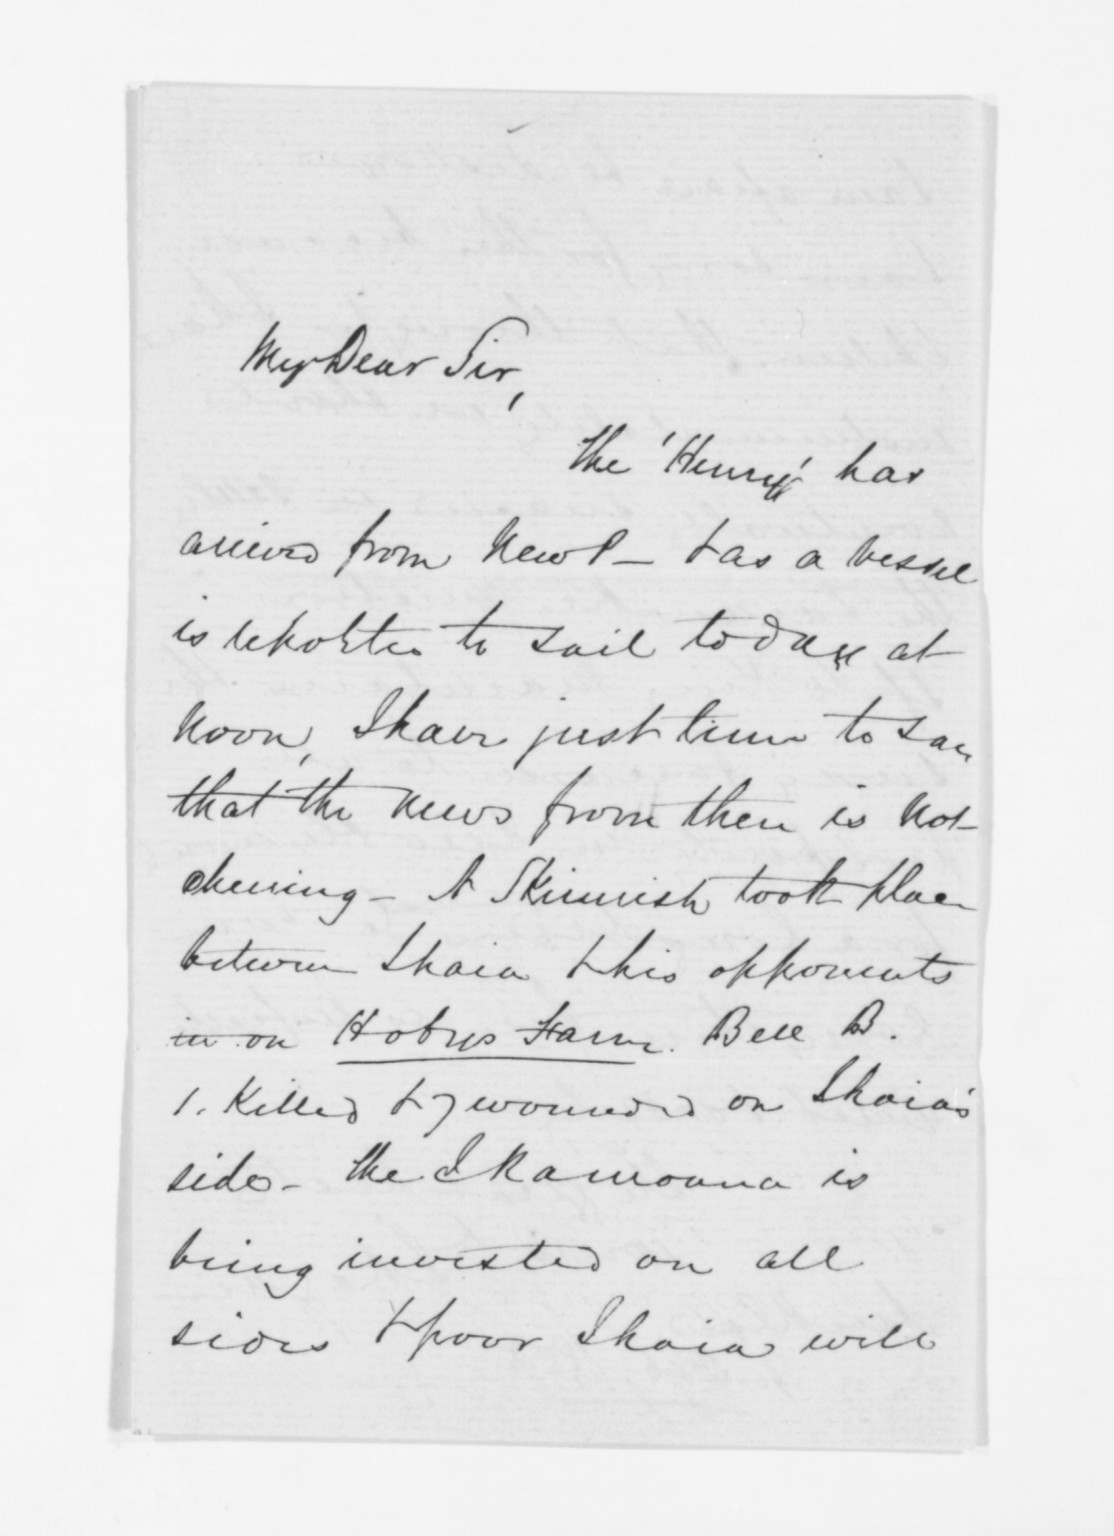 My Dear Sir,
The 'Henry' has
arrived from New P - & as a vessel
is reported to sail today at
Noon, I have just time to say
that the news from there is not
cheering - A Skirmish took place
between Ihaia & his opponents
in on Hobys Farm. Bell B.
1. Killed & 7 wounded on Ihaia's
side - The Ikamoana is
being invested on all
sides & poor Ihaia will